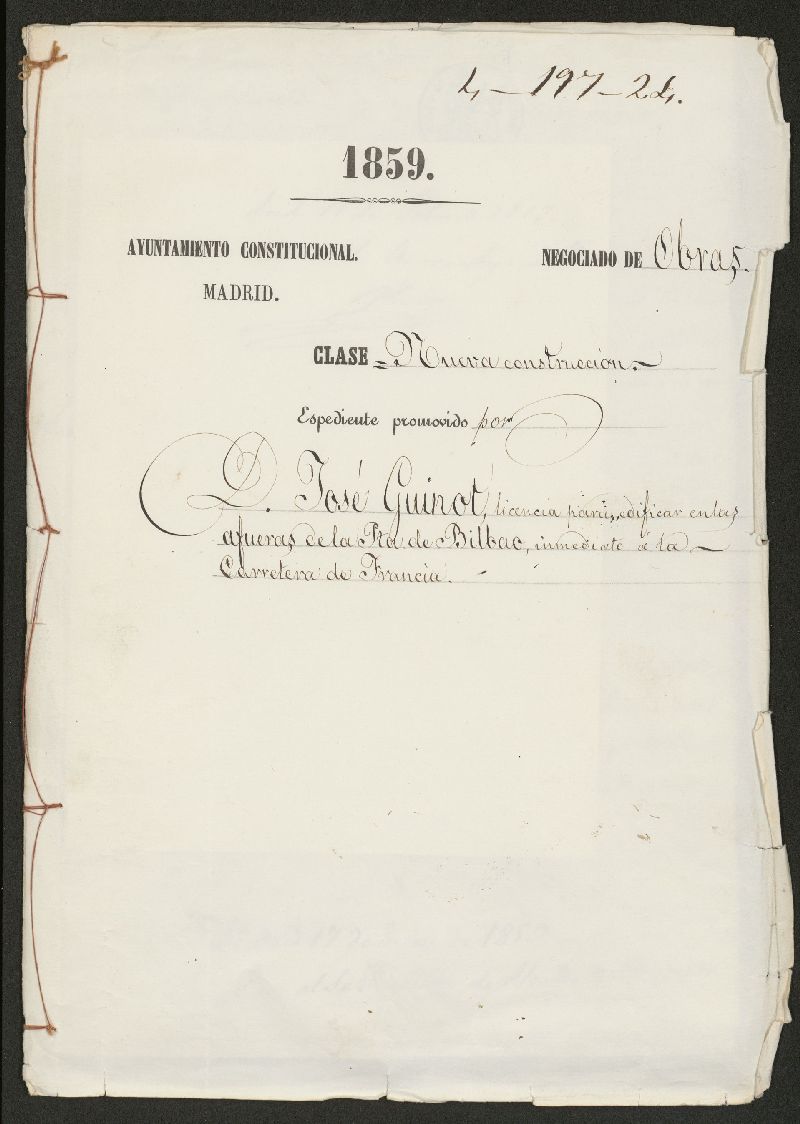 4-197-24.
1859.
AYUNTAMIENTO CONSTITUCIONAL.
MADRID.
NEGOCIADO DE Obras.
CLASE = Nueva construccion.
Espediente promovido por
D. José Guinot, licencia para edificar en las
afueras de la Pta de Bilbao, inmediato á la
Carretera de Francia.